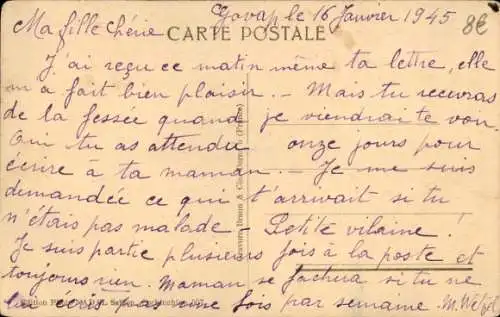 le 16 Janvier 1945
8€
Ma fille chérie
CARTE POSTALE
J'ai reçu ce matin même ta lettre, elle
m'a fait bien plaisir. — Mais tu recevras
de la fessée quand je viendrai te voir
Oui tu as attendu onze jours pour
écrire à ta maman. — Je me suis
demandée ce qui t'arrivait si tu
n'étais pas malade — Petite vilaine !
Je suis partie plusieurs fois à la poste et
toujours rien. Maman se fachera si tu ne
lui écris pas une fois par semaine. M. Wetzel